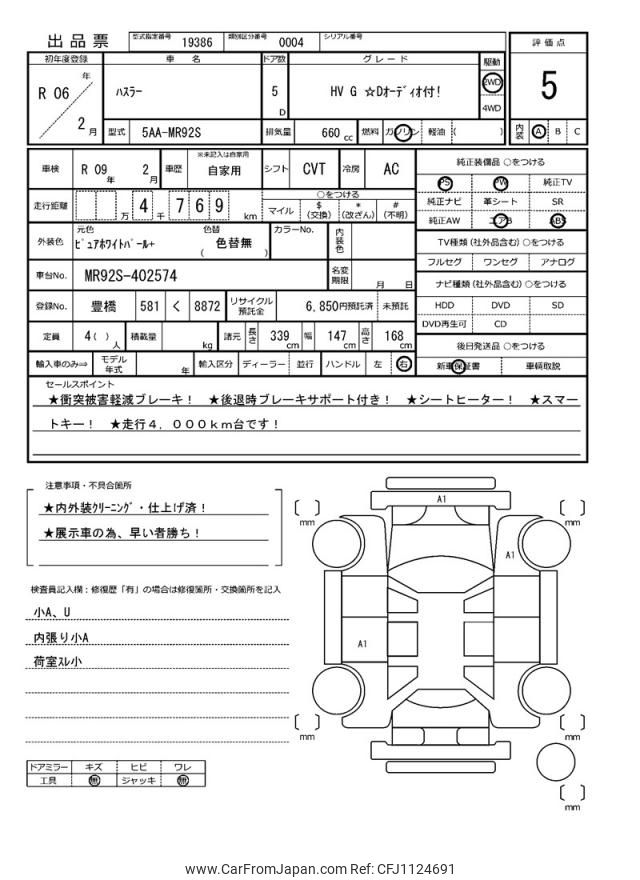 出品票 型式指定番号 19386 類別区分番号 0004 シリアル番号
評価点
初年度登録 車名 ドア数 グレード 駆動
R 06 年 2 月
ハスラー 5 D HV G ☆Dオーディオ付! 2WD 4WD
5
型式 5AA-MR92S 排気量 660 cc 燃料 ガソリン 軽油 ( ) 内装 A B C
車検 R 09 年 2 月 車歴 ※未記入は自家用 自家用 シフト CVT 冷房 AC
純正装備品 ○をつける
PS PW 純正TV
走行距離 万 4 千 7 6 9 km
○をつける
マイル $ (交換) * (改ざん) # (不明)
純正ナビ 革シート SR
純正AW エアB ABS
外装色 元色 ピュアホワイトパール+ 色替 ( 色替無 ) カラーNo. 内装色
TV種類 (社外品含む) ○をつける
フルセグ ワンセグ アナログ
車台No. MR92S-402574 名変期限 月 日
ナビ種類 (社外品含む) ○をつける
登録No. 豊橋 581 く 8872 リサイクル預託金 6,850円預託済 未預託
HDD DVD SD
DVD再生可 CD
定員 4( ) 人 積載量 kg 諸元 長さ 339 cm 幅 147 cm 高さ 168 cm
後日発送品 ○をつける
輸入車のみ⇒ モデル年式 年 輸入区分 ディーラー 並行 ハンドル 左 右
新車保証書 車輌取説
セールスポイント
★衝突被害軽減ブレーキ! ★後退時ブレーキサポート付き! ★シートヒーター! ★スマー
トキー! ★走行4,000km台です!
注意事項・不具合箇所
★内外装クリーニング・仕上げ済!
★展示車の為、早い者勝ち!
検査員記入欄:修復歴「有」の場合は修復箇所・交換箇所を記入
小A、U
内張り小A
荷室スレ小
ドアミラー キズ ヒビ ワレ
工具 無 ジャッキ 無
A1
mm
mm
A1
A1
mm
mm
mm
www.CarFromJapan.com Ref: CFJ1124691